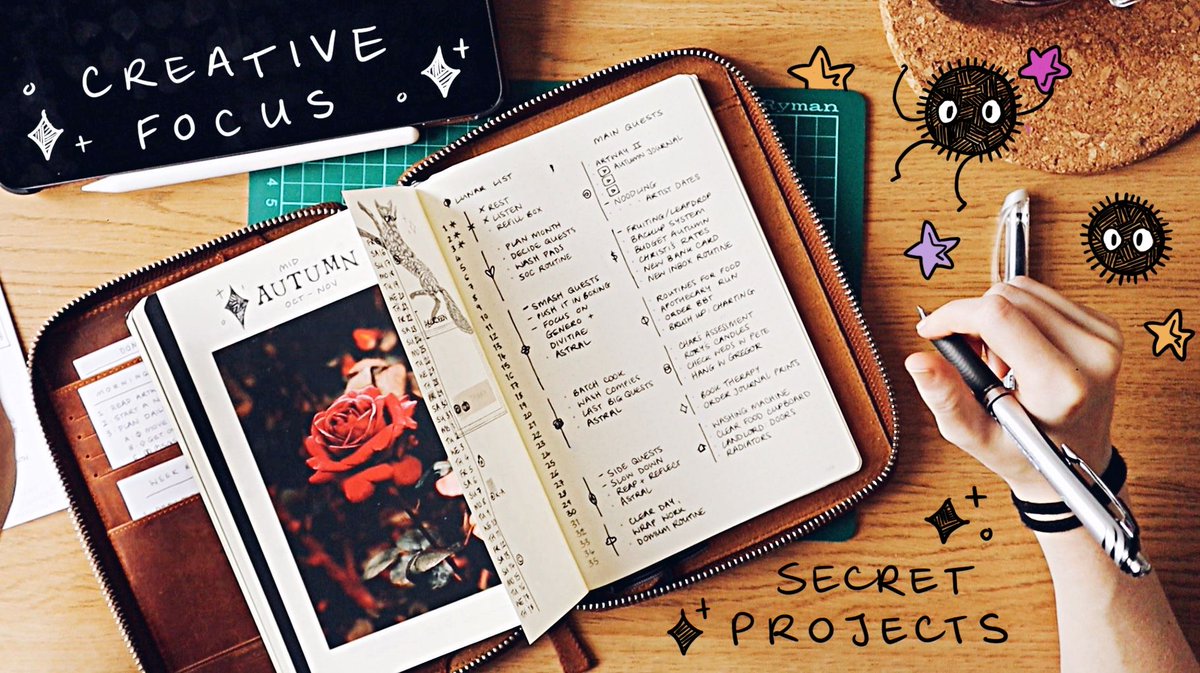 CREATIVE
FOCUS
Ryman
MID
AUTUMN
OCT-NOV
DON
MORNING
1 READ
2 START A
3 PLAN DAIL
WEEK R
LUNAR LIST
× REST
× LISTEN
REFILL BOX
· PLAN MONTH
· DECIDE QUESTS
· WASH PADS
· SOC ROUTINE
- SMASH QUESTS
· PUSH IT IN BOXING
- FOCUS ON
GENERO +
DIVITIAE
· ASTRAL
· BATCH COOK
· WASH COMPIES
· LAST BIG QUESTS
· ASTRAL
- SIDE QUESTS
- SLOW DOWN
· REAP + REFLECT
· ASTRAL
· CLEAR DAY
· WRAP WORK
· DOMUM ROUTINE
1
2
3
4
5
6
7
8
9
10
11
12
13
14
15
16
17
18
19
20
21
22
23
24
25
26
27
28
29
30
31
32
33
34
35
MAIN QUESTS
ARTWAY II
AUTUMN JOURNAL
NOODLING
· ARTIST DATES
· FRUITING/LEAFDROP
· BACKUP SYSTEM
· BUDGET AUTUMN
· CHRISTI'S RATES
· NEW BANK CARD
· NEW INBOX ROUTINE
· ROUTINES FOR FOOD
· APOTHECARY RUN
· ORDER BBT
· BRUSH UP CHARTING
· CHARS ASSESSMENT
· RORYS CANDLES
· CHECK WEDS W PETE
· HANG W GREGOR
· BOOK THERAPY
· ORDER JOURNAL PRINTS
· WASHING MACHINE
· CLEAR FOOD CUPBOARD
· LANDLORD DOORS
· RADIATORS
SECRET
PROJECTS